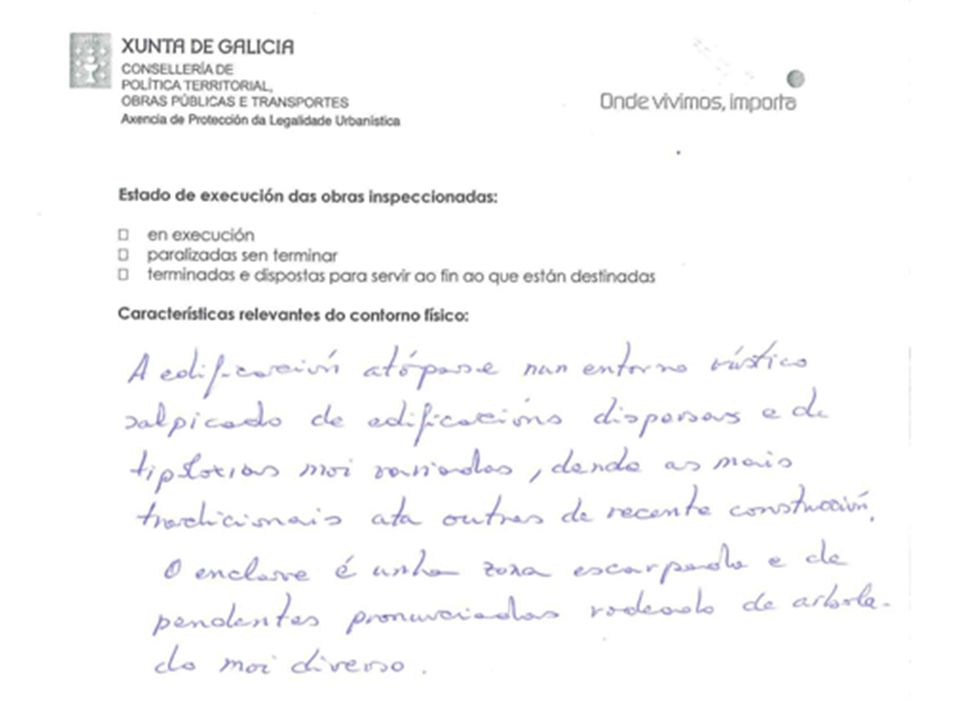 XUNTA DE GALICIA
CONSELLERÍA DE
POLÍTICA TERRITORIAL,
OBRAS PÚBLICAS E TRANSPORTES
Axencia de Protección da Legalidade Urbanística
Onde vivimos, importa
Estado de execución das obras inspeccionadas:
□ en execución
□ paralizadas sen terminar
□ terminadas e dispostas para servir ao fin ao que están destinadas
Características relevantes do contorno físico:
A edificación atópase nun entorno rústico
salpicado de edificacións dispersas e de
tipoloxías moi variadas, dende as mais
tradicionais ata outras de recente construcción.
O enclave é unha zona escarpada e de
pendentes pronunciadas rodeado de arbola-
do moi diverso.